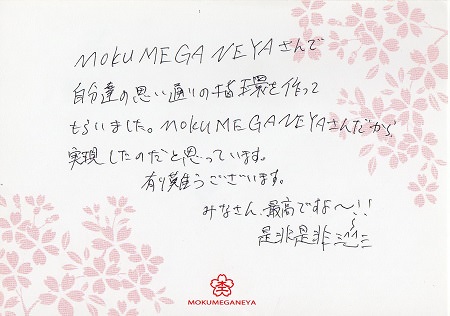 MOKUMEGANEYAさんで
自分達の思い通りの指環を作って
もらいました。MOKUMEGANEYAさんだから
実現したのだと思っています。
有り難うございます。
みなさん、最高ですよ〜!!
是非是非
MOKUMEGANEYA